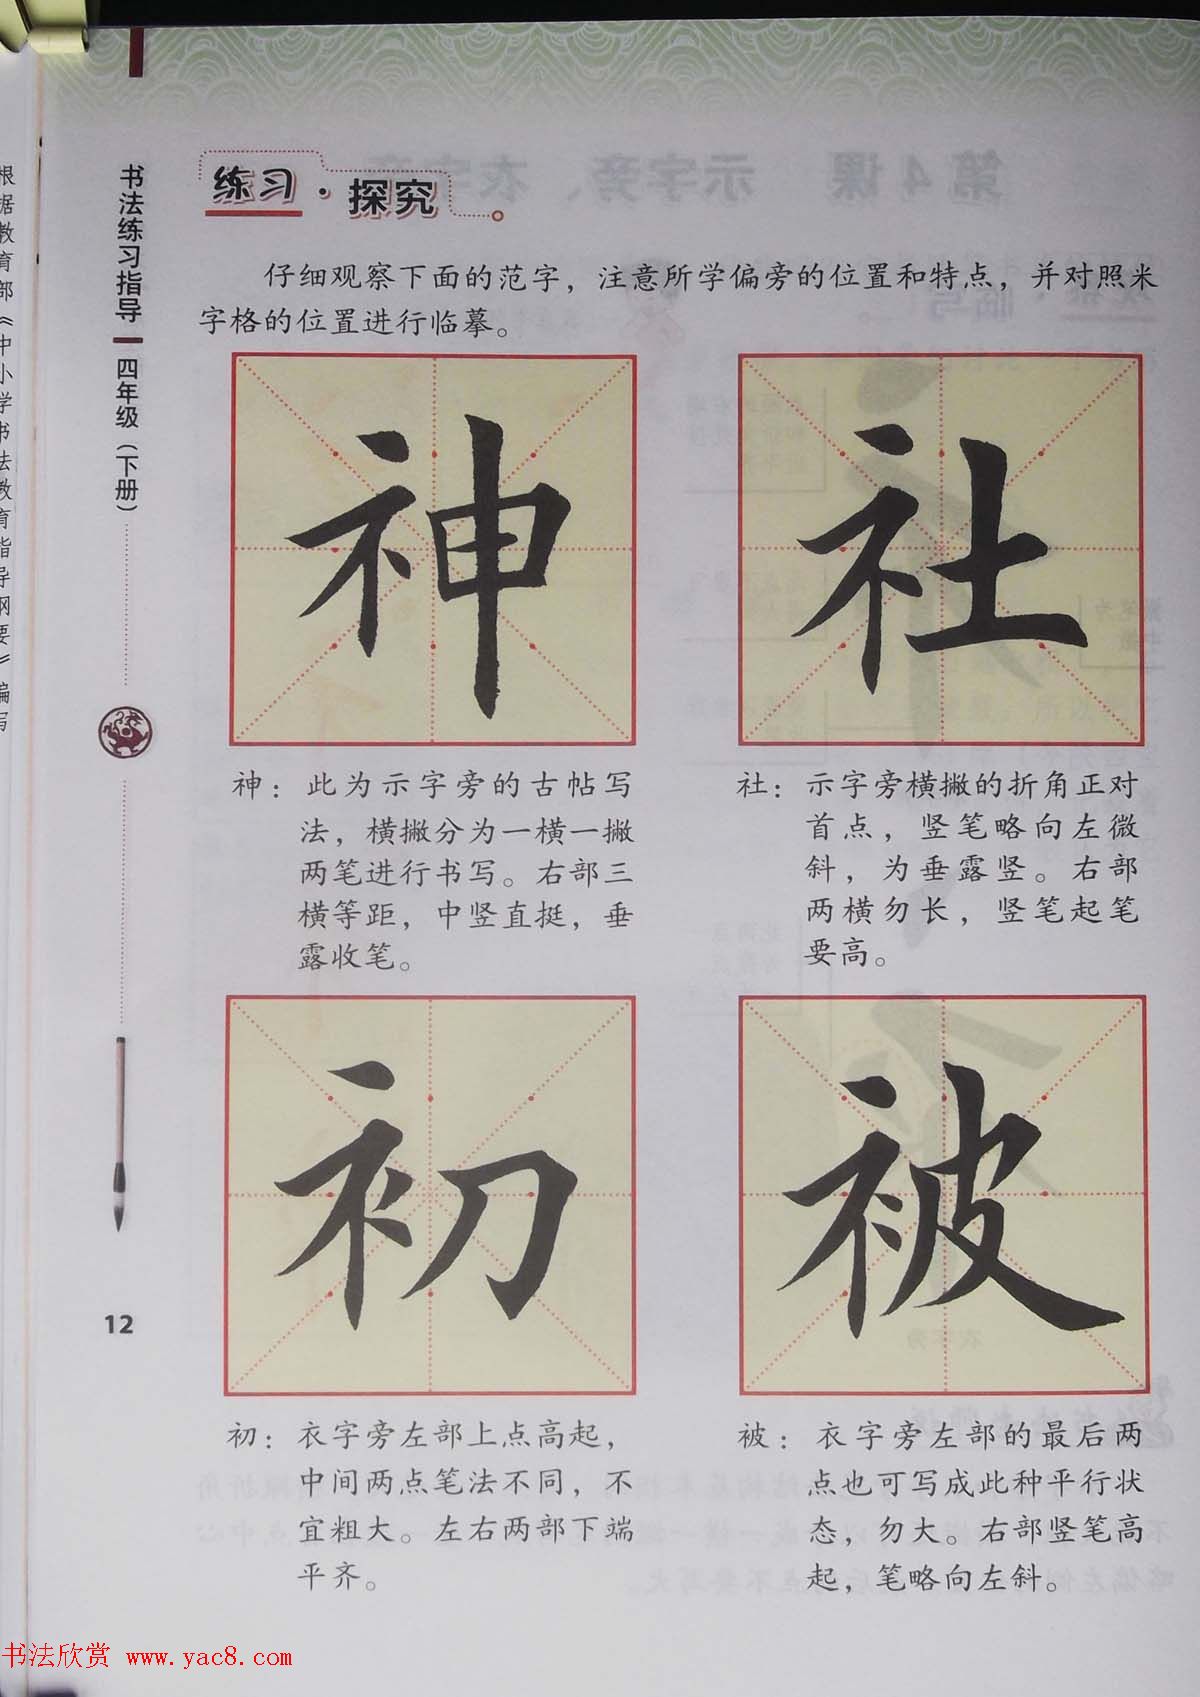 书法练习指导
四年级（下册）
12
根据教育部《中小学书法教育指导纲要》编写
练习·探究
仔细观察下面的范字，注意所学偏旁的位置和特点，并对照米
字格的位置进行临摹。
神
社
神：此为示字旁的古帖写
法，横撇分为一横一撇
两笔进行书写。右部三
横等距，中竖直挺，垂
露收笔。
社：示字旁横撇的折角正对
首点，竖笔略向左微
斜，为垂露竖。右部
两横勿长，竖笔起笔
要高。
初
被
初：衣字旁左部上点高起，
中间两点笔法不同，不
宜粗大。左右两部下端
平齐。
被：衣字旁左部的最后两
点也可写成此种平行状
态，勿大。右部竖笔高
起，笔略向左斜。
书法欣赏 www.yac8.com